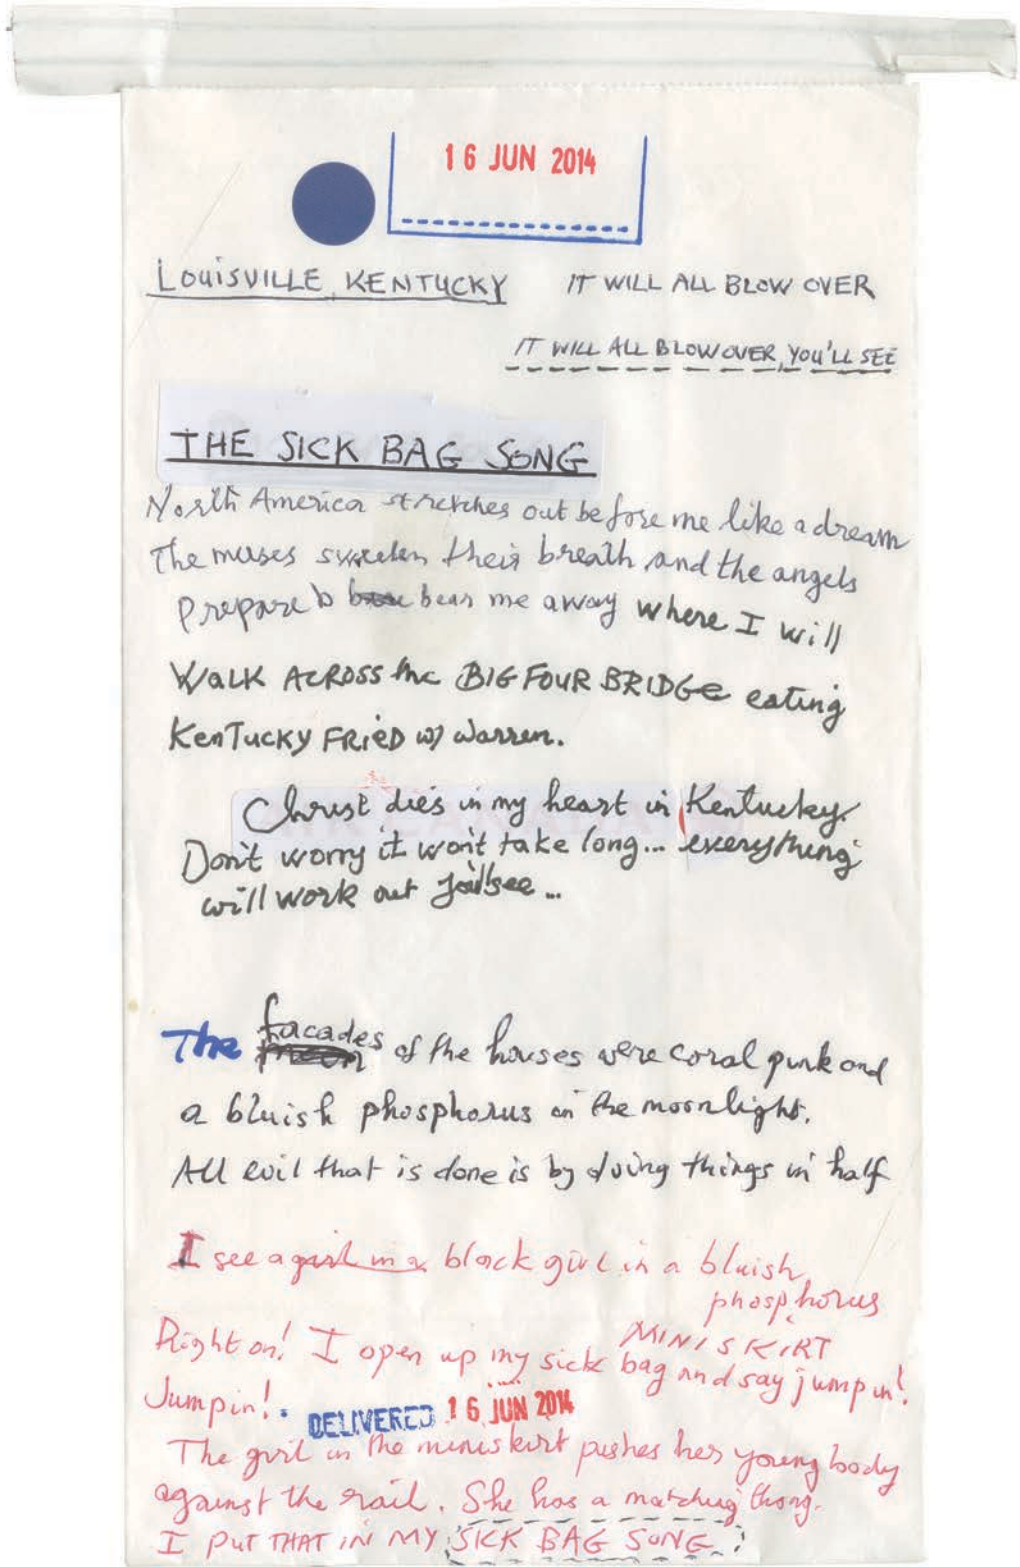 16 JUN 2014
LOUISVILLE KENTUCKY IT WILL ALL BLOW OVER
IT WILL ALL BLOW OVER, YOU'LL SEE
THE SICK BAG SONG
North America stretches out before me like a dream
The muses sweeten their breath and the angels
prepare to bear me away where I will
WALK ACROSS the BIG FOUR BRIDGE eating
KENTUCKY FRIED w/ Warren.
Christ dies in my heart in Kentucky.
Don't worry it won't take long... everything
will work out you'll see...
The facades of the houses were coral pink and
a bluish phosphorus in the moonlight.
All evil that is done is by doing things in half
I see a girl in a black girl in a bluish
phosphorus
MINISKIRT
Right on! I open up my sick bag and say jump in!
Jump in!.
DELIVERED 16 JUN 2014
The girl in the miniskirt pushes her young body
against the rail. She has a matching thong.
I PUT THAT IN MY SICK BAG SONG